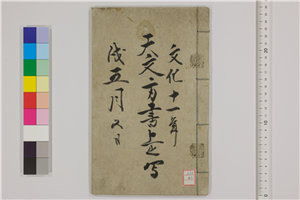 文化十一年
天文方書上之写
戌五月